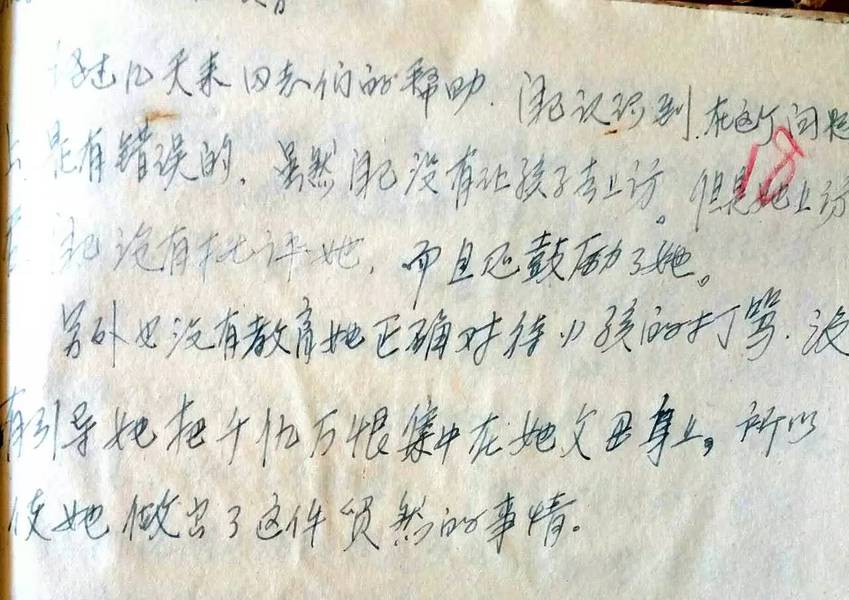 经过几天来同志们的帮助. 我认识到在这个问题
上是有错误的, 虽然我没有让孩子去上访。但是她上访
我没有批评她, 而且还鼓励了她。
另外也没有教育她正确对待小孩的打骂. 没
有引导她把千仇万恨集中在她父母身上, 所以
使她做出了这件贸然的事情。
18